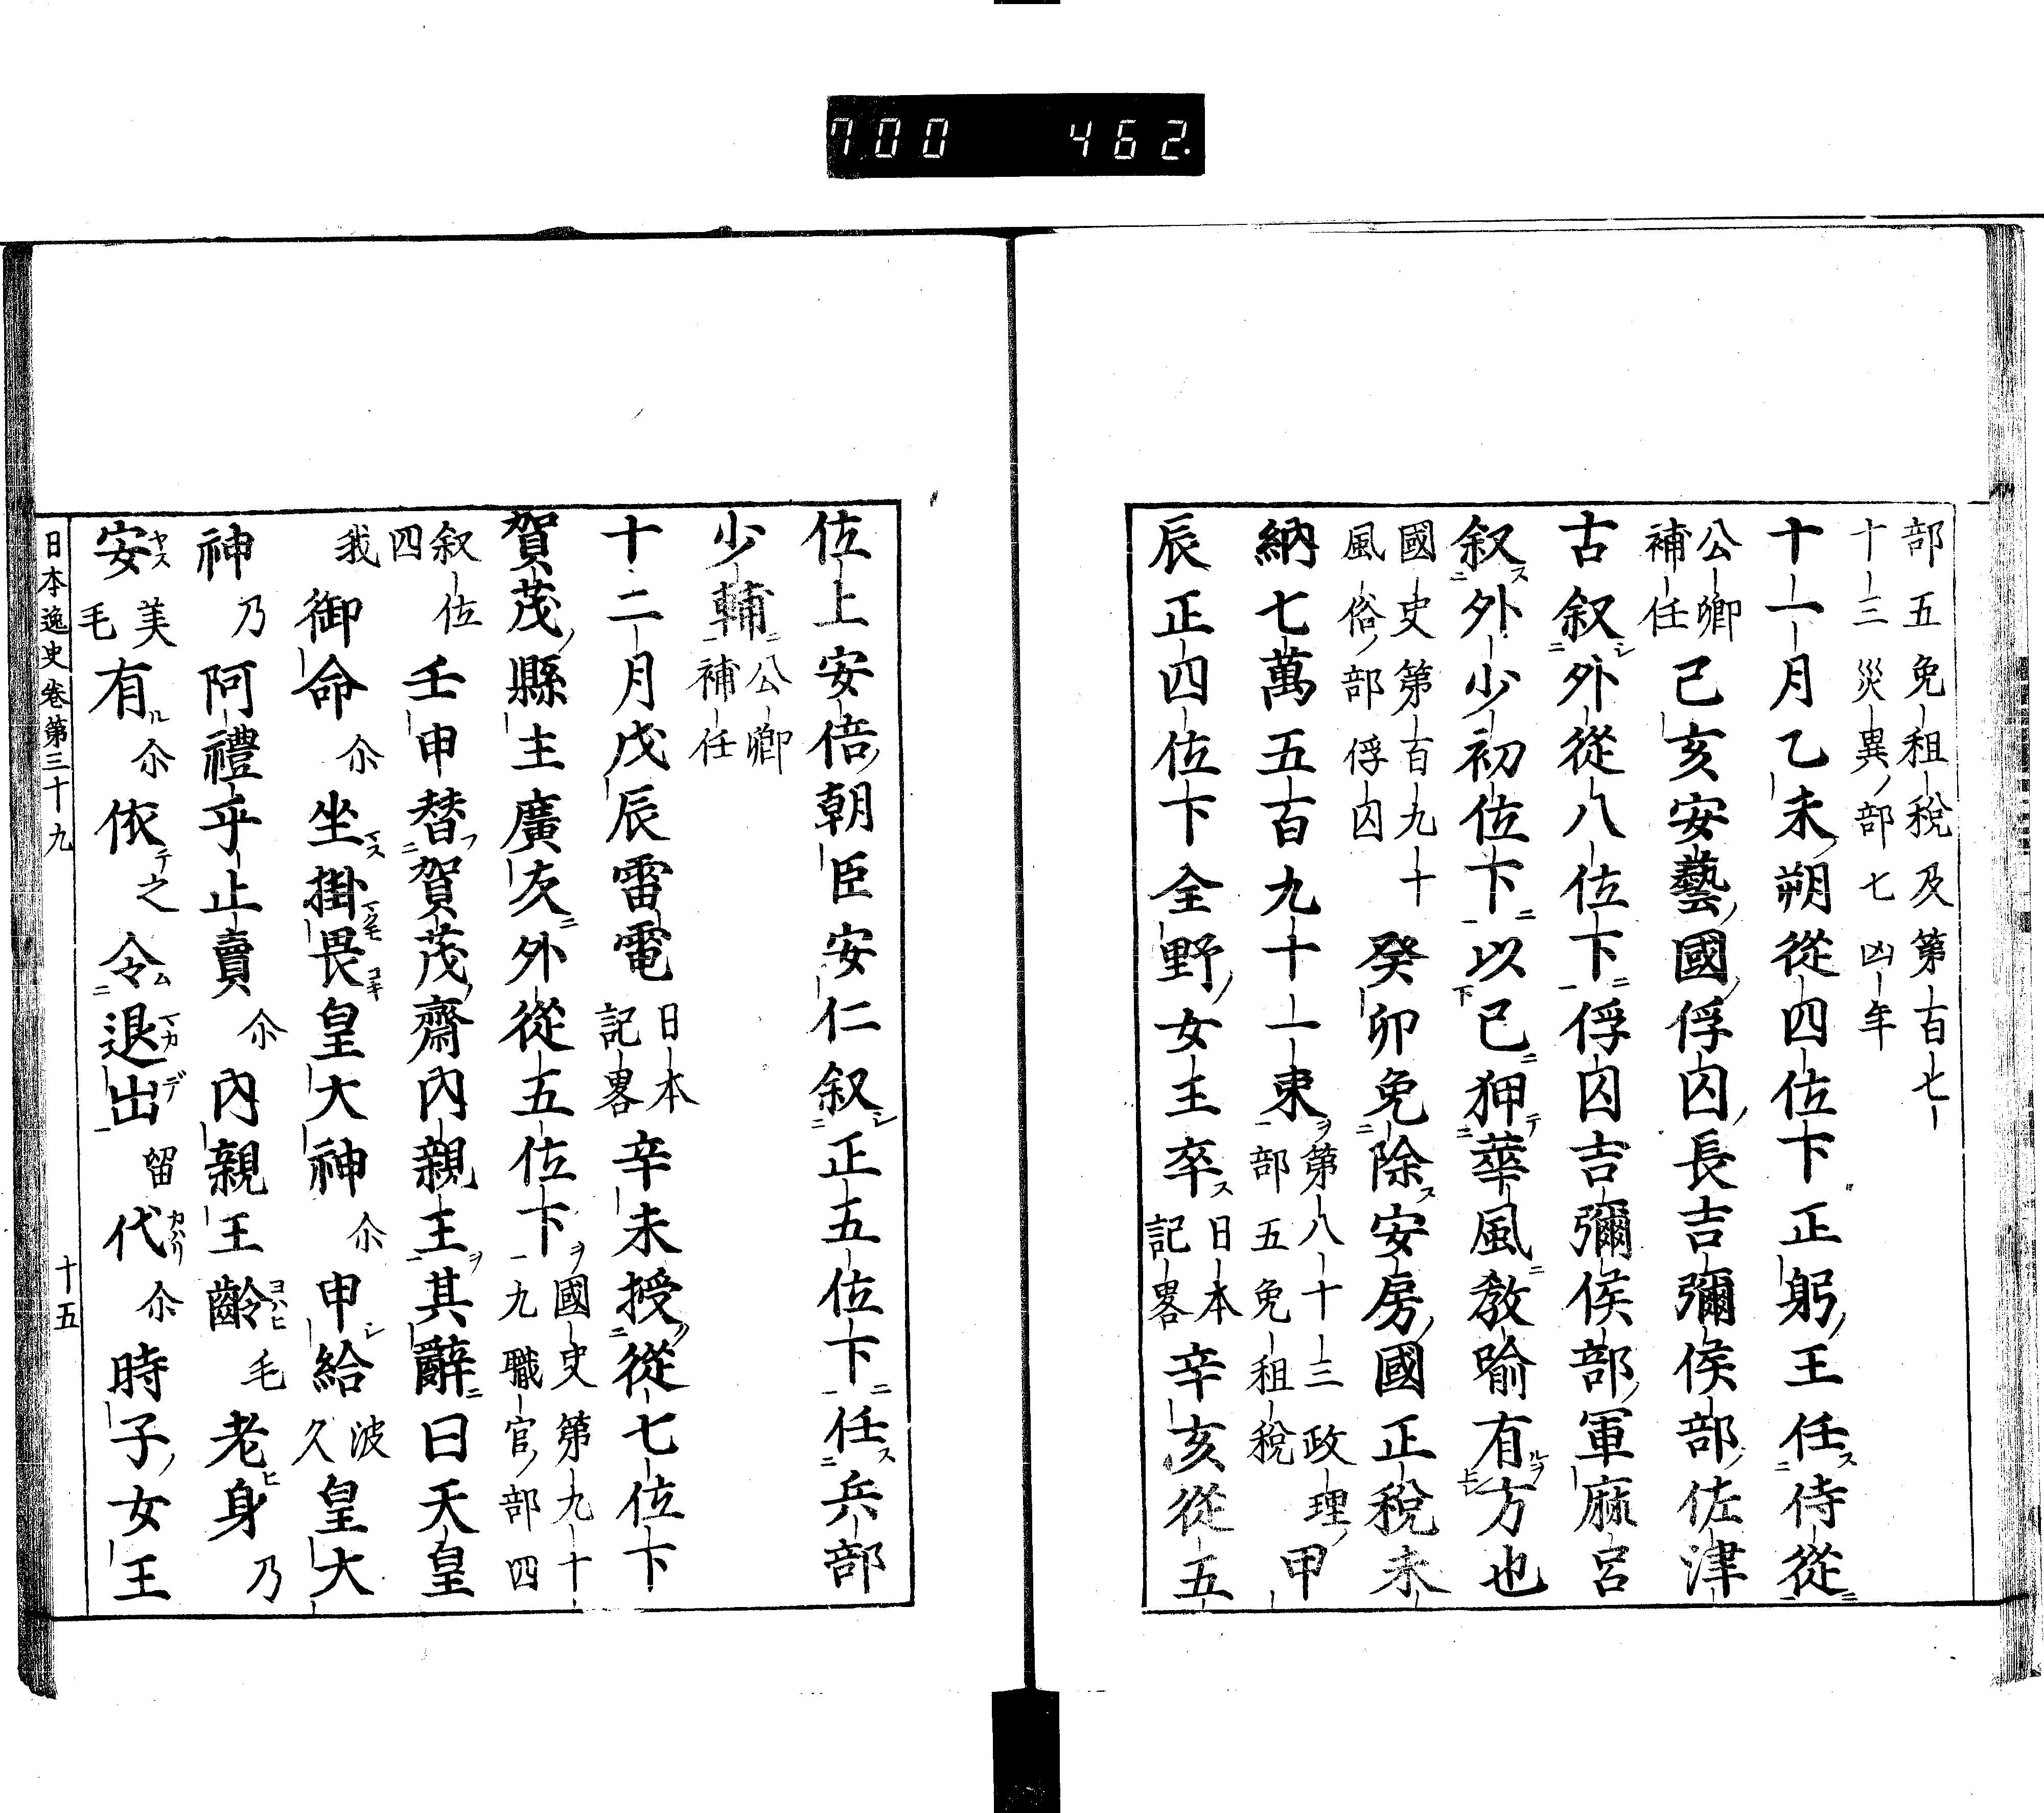 700 462
部五免租稅及第百七
十三災異部七凶年
十一月乙未朔從四位下正躬王任侍從
公卿
補任
己亥安藝國俘囚長吉彌侯部佐津
古叙外從八位下俘囚吉彌侯部軍麻呂
叙外少初位下以己狎華風敎喻有方也
國史第百九十
風俗部俘囚
癸卯免除安房國正稅未
納七萬五百九十一束
第八十三政理
部五免租稅
甲
辰正四位下全野女王卒
日本
記畧
辛亥從五
位上安倍朝臣安仁叙正五位下任兵部
少輔
公卿
補任
十二月戊辰雷電
日本
記畧
辛未授從七位下
賀茂縣主廣友外從五位下
國史第九十
九職官部四
叙位
四
壬申替賀茂齋內親王其辭曰天皇
我御命尒坐掛畏皇大神尒申給波久皇大
神乃阿禮乎止賣尒內親王齡毛老身乃
安美毛有尒依之令退出留代尒時子女王
日本逸史卷第三十九 十五